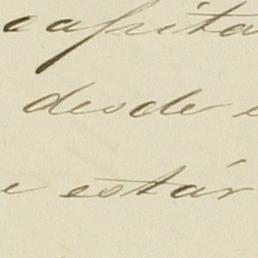 capita
desde
e estár